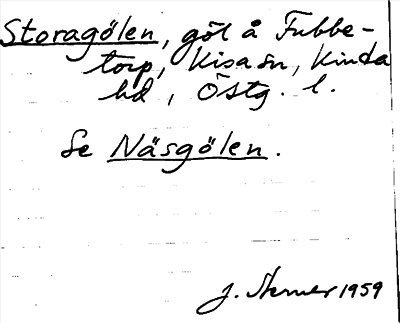 Storagölen, göl å Fubbe-
torp, Kisa sn, Kinda
hd, Östg. l.
Se Näsgölen.
J. Sterner 1959